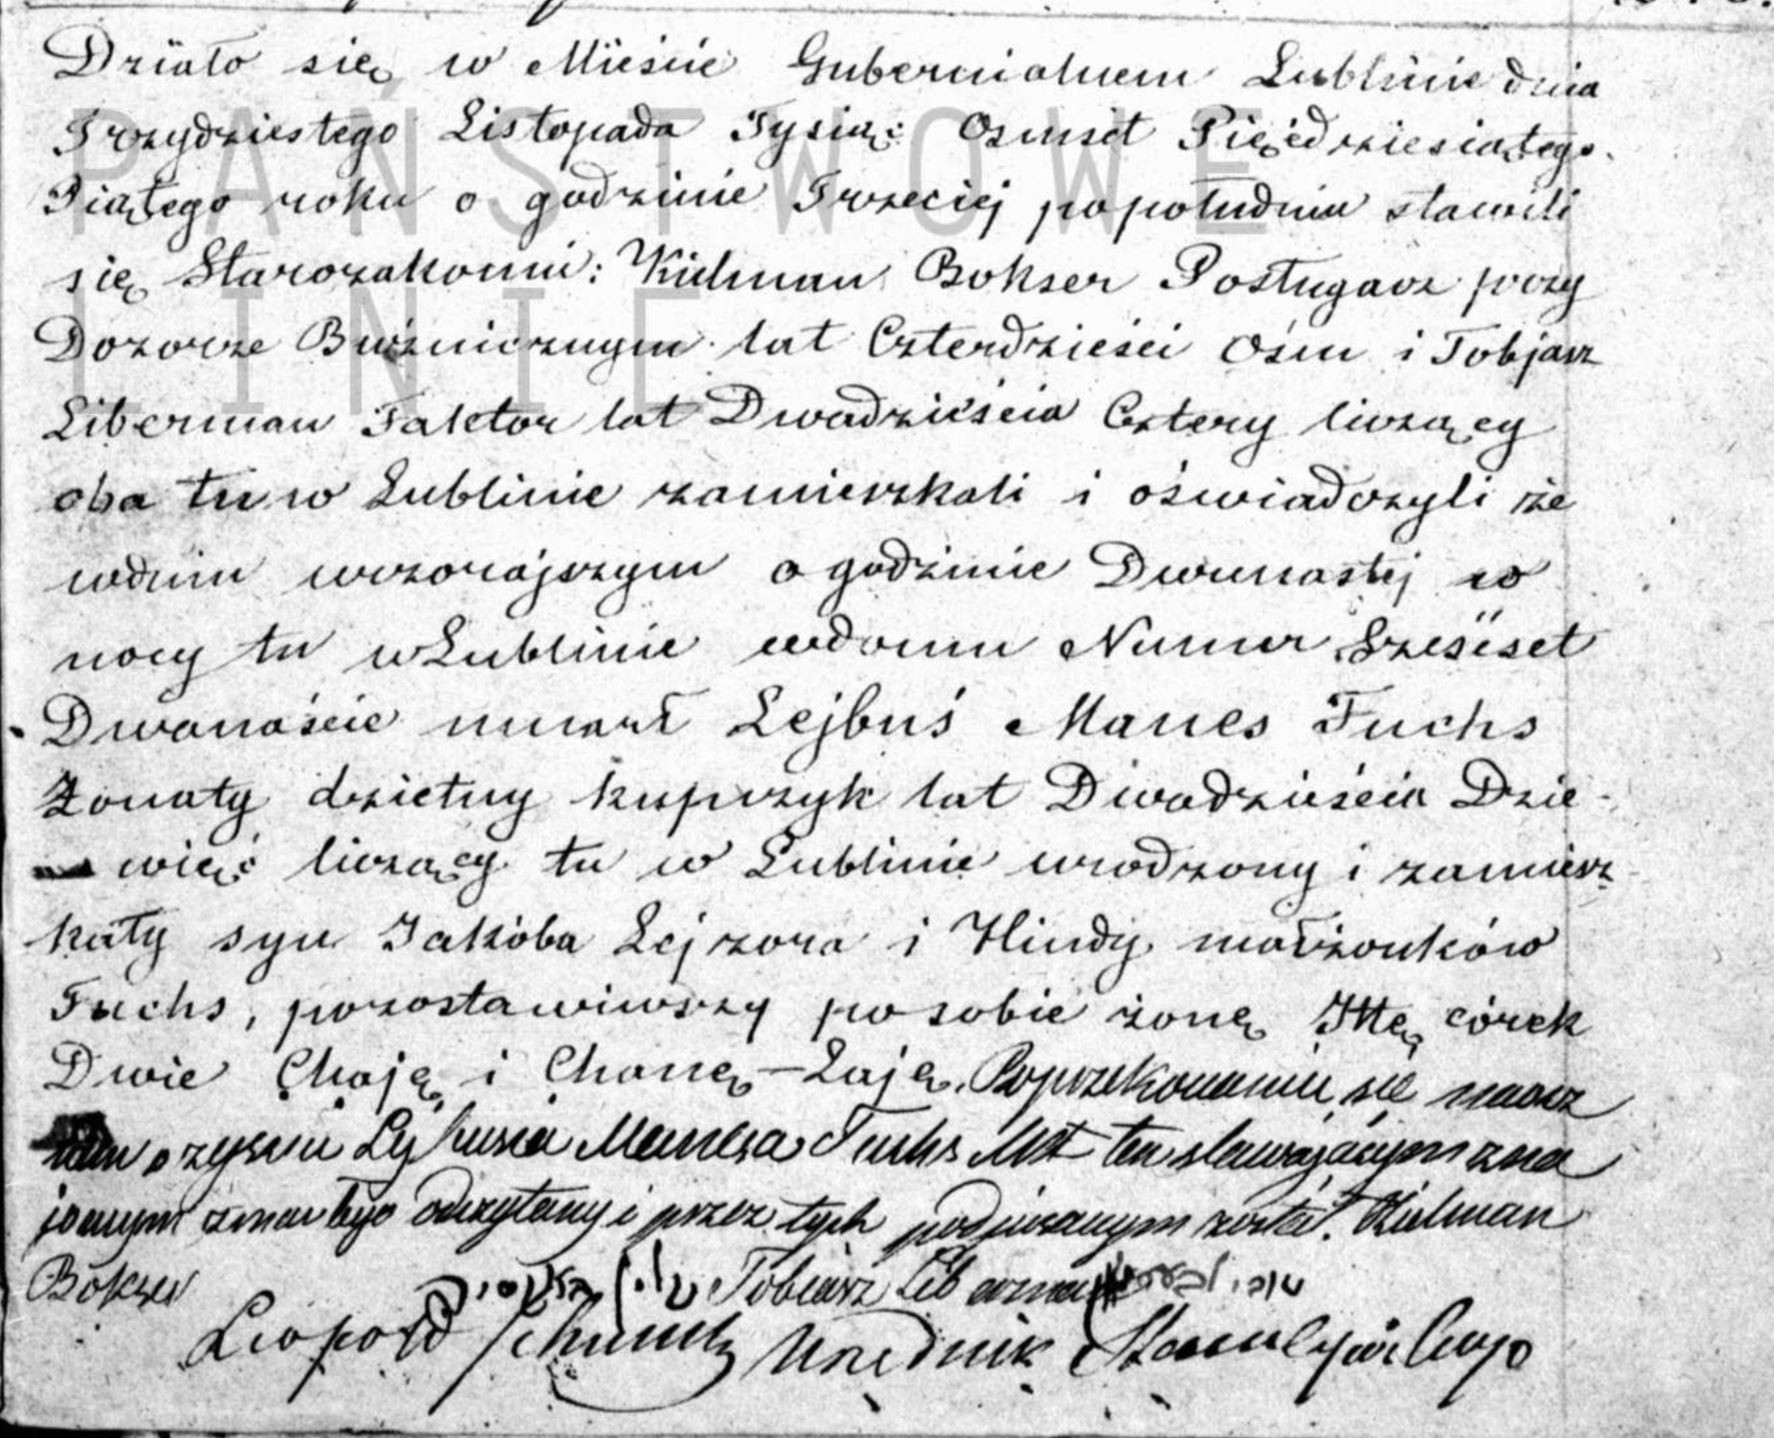 Działo się w Mieście Gubernialnem Lublinie dnia
Trzydziestego Listopada Tysiąc Osmset Pięćdziesiątego
Piątego roku o godzinie Trzeciej popołudniu stawili
się Starozakonni: Kielman Bokser Posługacz przy
Dozorze Bużnicznym lat Czterdzieści Ośm i Tobjasz
Liberman Faktor lat Dwadzieścia Cztery liczący
oba tu w Lublinie zamieszkali i oświadczyli że
wdniu wczorajszym o godzinie Dwunastej w
nocy tu w Lublinie wdomu Numer Sześset
Dwanaście umarł Lejbuś Manes Fuchs
Żonaty dzietny kupczyk lat Dwadzieścia Dzie-
więć liczący tu w Lublinie urodzony i zamiesz
kały syn Jakóba Lejzora i Hindy małżonków
Fuchs, pozostawiwszy po sobie żonę Ittę córek
Dwie Chaję i Chanę-Łaję. Poprzekonaniu się naocz
o zejściu Lejbusia Manesa Fuchs Akt ten stawającym zna
jomym zmarłego odczytany i przez tych podpisanym został. Kielman
Bokser Tobiasz Liberman
Leopold Urzednik Stanu Cywilnego
PAŃSTWOWE
LINIE